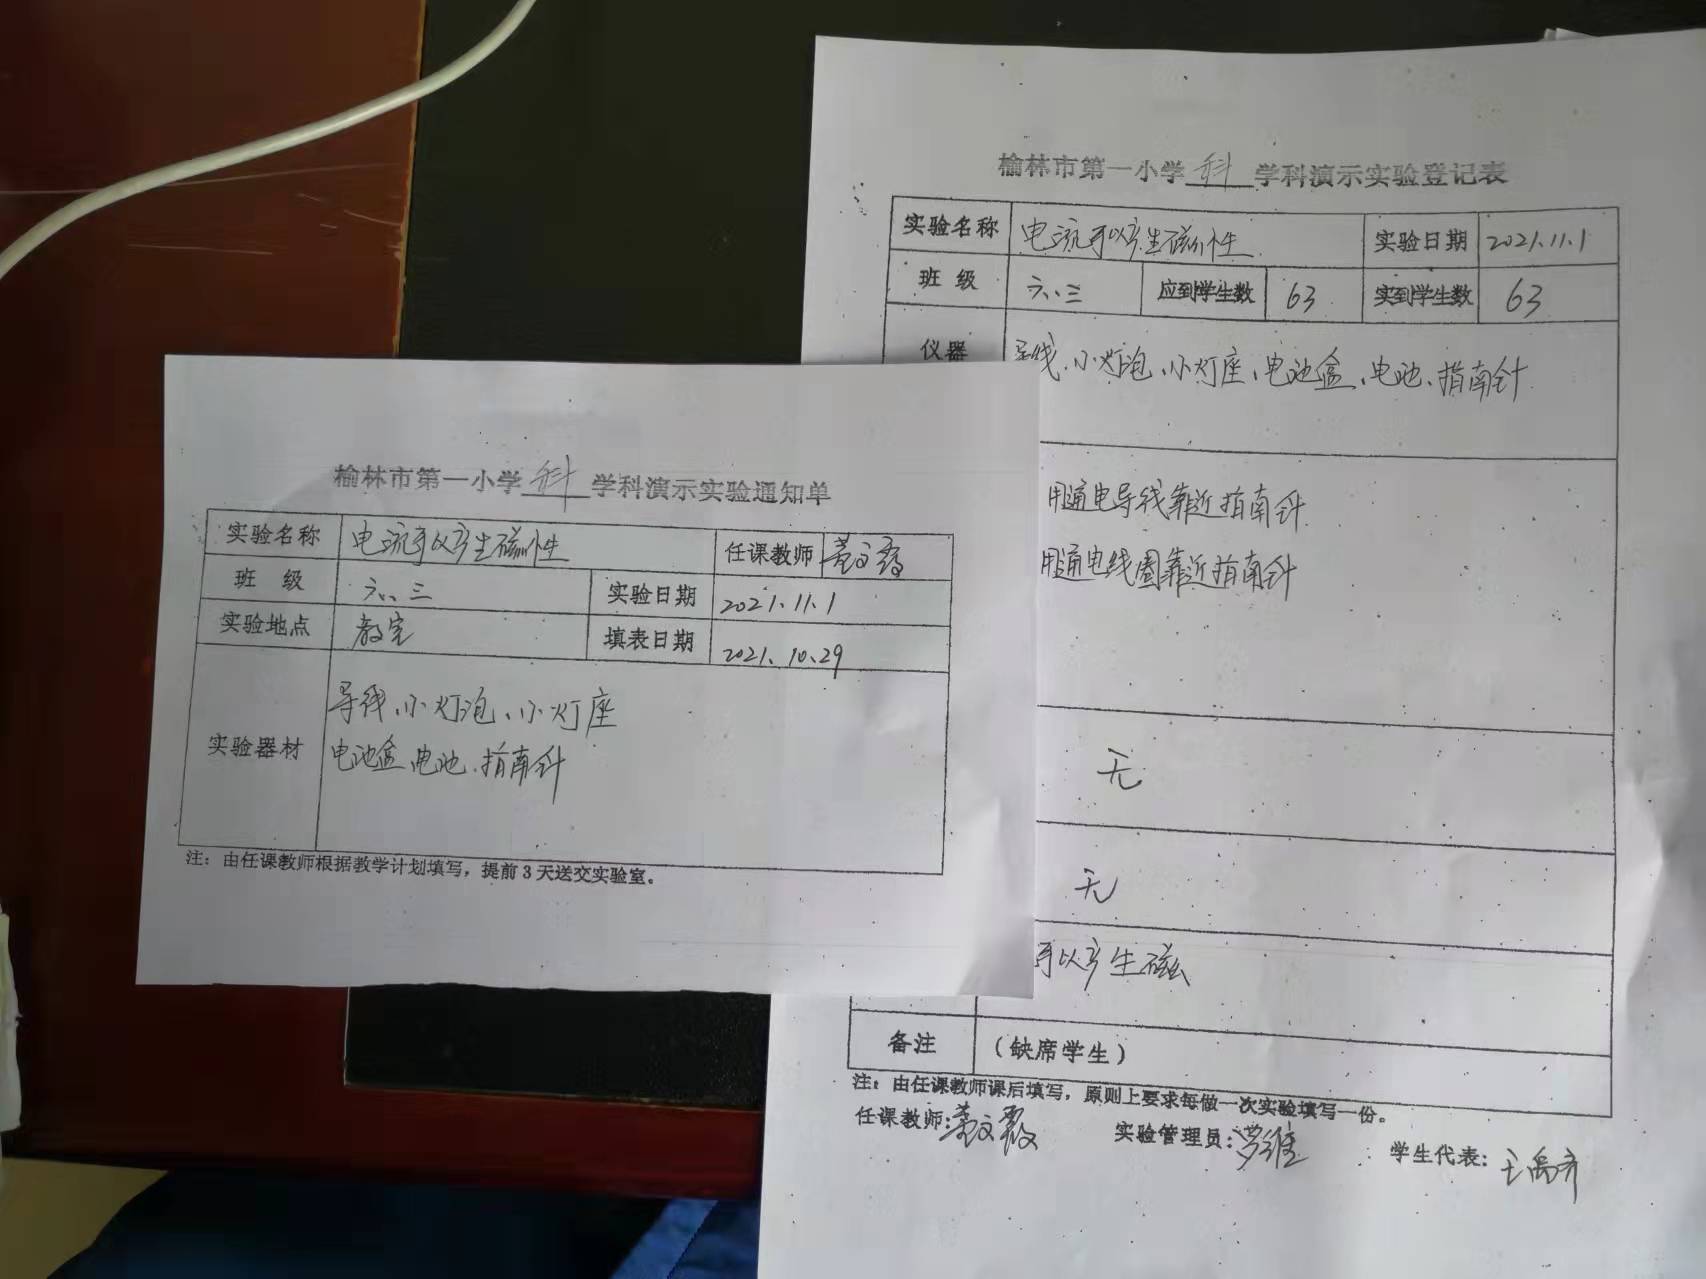 榆林市第一小学 科 学科演示实验通知单
实验名称 电流可以产生磁性 任课教师
班 级 六、三 实验日期 2021.11.1
实验地点 教室 填表日期 2021.10.29
实验器材 导线、小灯泡、小灯座
电池盒、电池、指南针
注：由任课教师根据教学计划填写，提前3天送交实验室。
榆林市第一小学 科 学科演示实验登记表
实验名称 电流可以产生磁性 实验日期 2021.11.1
班 级 六、三 应到学生数 63 实到学生数 63
仪器 导线、小灯泡、小灯座、电池盒、电池、指南针
用通电导线靠近指南针
用通电线圈靠近指南针
无
无
可以产生磁
备注 （缺席学生）
注：由任课教师课后填写，原则上要求每做一次实验填写一份。
任课教师： 实验管理员：罗维 学生代表：